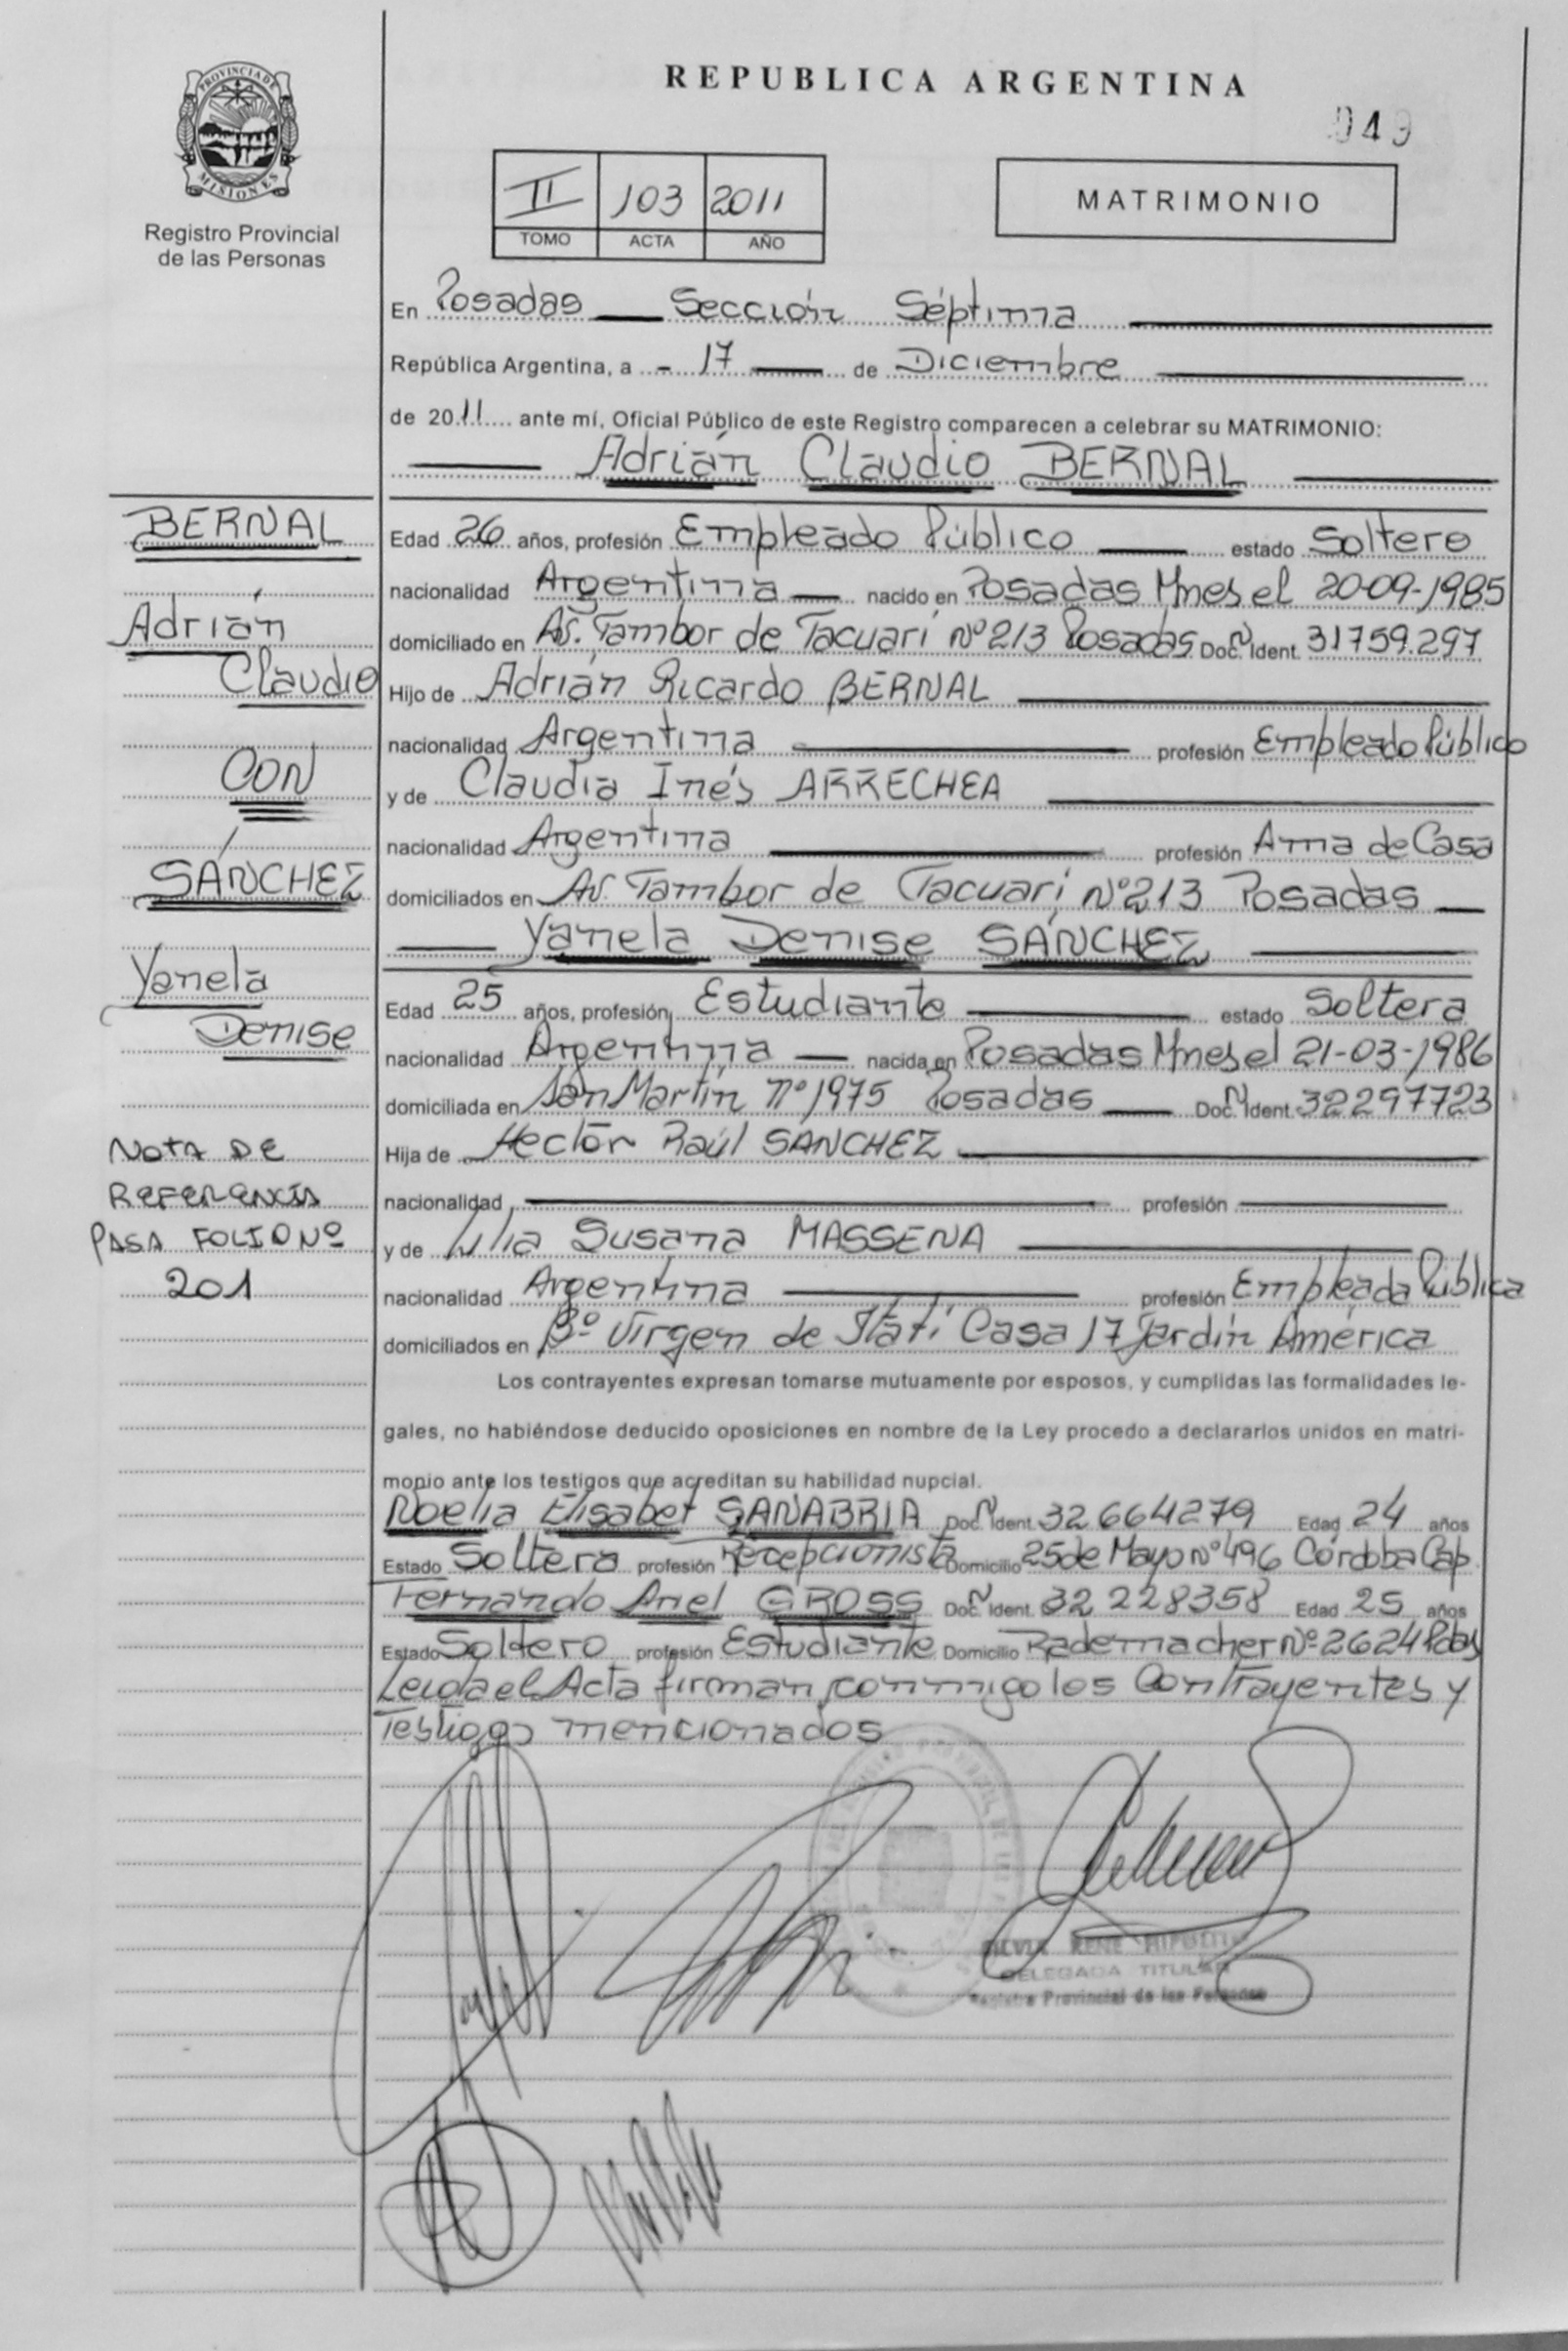 REPUBLICA ARGENTINA
049
PROVINCIA DE
MISIONES
Registro Provincial
de las Personas
II 103 2011
TOMO ACTA AÑO
MATRIMONIO
En Posadas — Sección Séptima
República Argentina, a - 17 — de Diciembre
de 2011 ante mí, Oficial Público de este Registro comparecen a celebrar su MATRIMONIO:
Adrián Claudio BERNAL
BERNAL
Adrián
Claudio
CON
SÁNCHEZ
Yanela
Denise
NOTA DE
REFERENCIA
PASA FOLIO Nº
201
Edad 26 años, profesión Empleado Público estado Soltero
nacionalidad Argentina — nacido en Posadas Mnes el 20-09-1985
domiciliado en Av. Tambor de Tacuarí Nº 213 Posadas Doc. N Ident. 31759.297
Hijo de Adrián Ricardo BERNAL
nacionalidad Argentina profesión Empleado Público
y de Claudia Inés ARRECHEA
nacionalidad Argentina profesión Ama de Casa
domiciliados en Av. Tambor de Tacuarí Nº 213 Posadas —
Yanela Denise SÁNCHEZ
Edad 25 años, profesión Estudiante estado Soltera
nacionalidad Argentina — nacida en Posadas Mnes el 21-03-1986
domiciliada en San Martín nº 1975 Posadas — Doc. N Ident. 32297723
Hija de Hector Raúl SANCHEZ
nacionalidad — profesión —
y de Lilia Susana MASSENA
nacionalidad Argentina profesión Empleada Pública
domiciliados en Bº Virgen de Itatí Casa 17 Jardín América
Los contrayentes expresan tomarse mutuamente por esposos, y cumplidas las formalidades le-
gales, no habiéndose deducido oposiciones en nombre de la Ley procedo a declararlos unidos en matri-
monio ante los testigos que acreditan su habilidad nupcial.
Noelia Elisabet SANABRIA Doc. N Ident. 32664279 Edad 24 años
Estado Soltera profesión Recepcionista Domicilio 25 de Mayo nº 496 Córdoba Cap.
Fernando Ariel GROSS Doc. N Ident. 32228358 Edad 25 años
Estado Soltero profesión Estudiante Domicilio Rademacher Nº 2624 Pdas
Leida el Acta firman conmigo los Contrayentes y
Testigos mencionados
SILVIA RENE HIPOLITO
DELEGADA TITULAR
Registro Provincial de las Personas